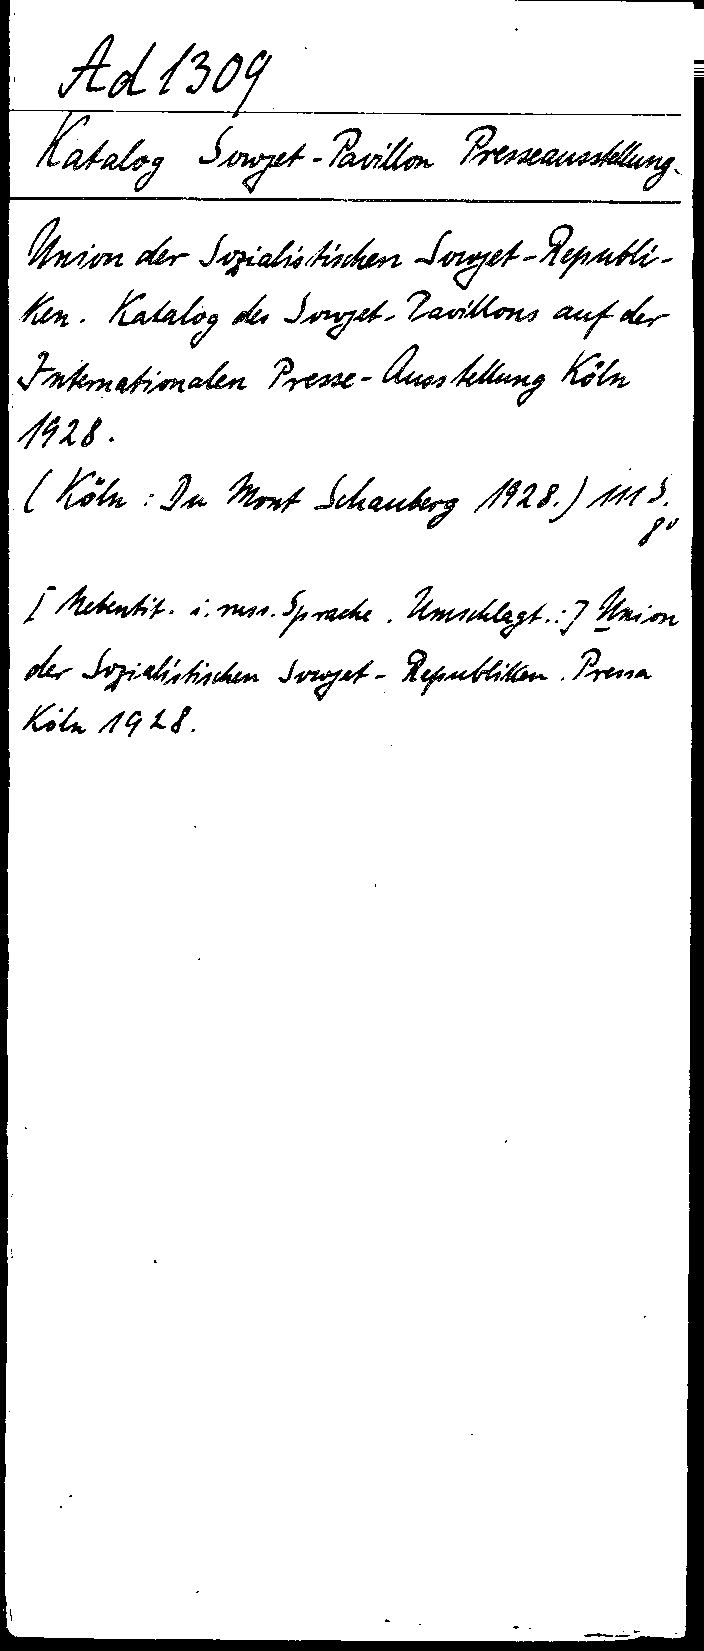 Ad 1309
Katalog Sowjet-Pavillon Presseausstellung.
Union der Sozialistischen Sowjet-Republi-
ken. Katalog des Sowjet-Pavillons auf der
Internationalen Presse-Ausstellung Köln
1928.
(Köln : Du Mont Schauberg 1928.) 111 S.
8°
[Nebentit. i. russ. Sprache. Umschlagt.:] Union
der Sozialistischen Sowjet-Republiken. Pressa
Köln 1928.